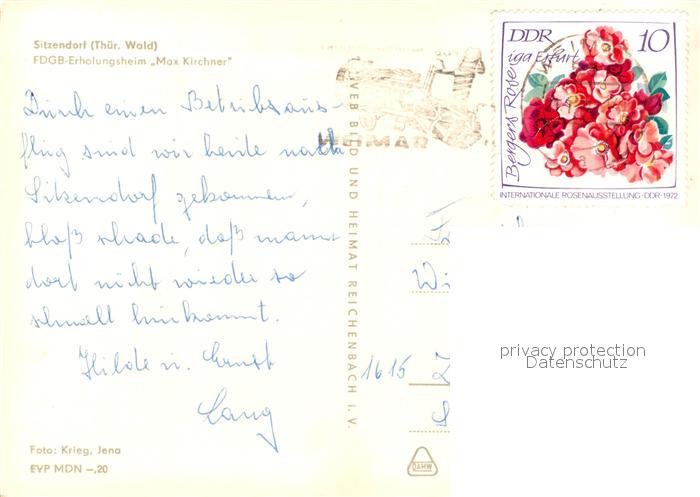 Sitzendorf (Thür. Wald)
FDGB-Erholungsheim „Max Kirchner"
Durch einen Betriebsaus-
flug sind wir heute nach
Sitzendorf gekommen,
bloß schade, daß man
dort nicht wieder so
schnell hinkommt.
Hilde u. Ernst
Lang
Foto: Krieg, Jena
EVP MDN –,20
VEB BILD UND HEIMAT REICHENBACH I. V.
WEIMAR
DDR 10
iga Erfurt
Bergers Rose
INTERNATIONALE ROSENAUSSTELLUNG · DDR · 1972
Wi
1615
privacy protection
Datenschutz
DAMW